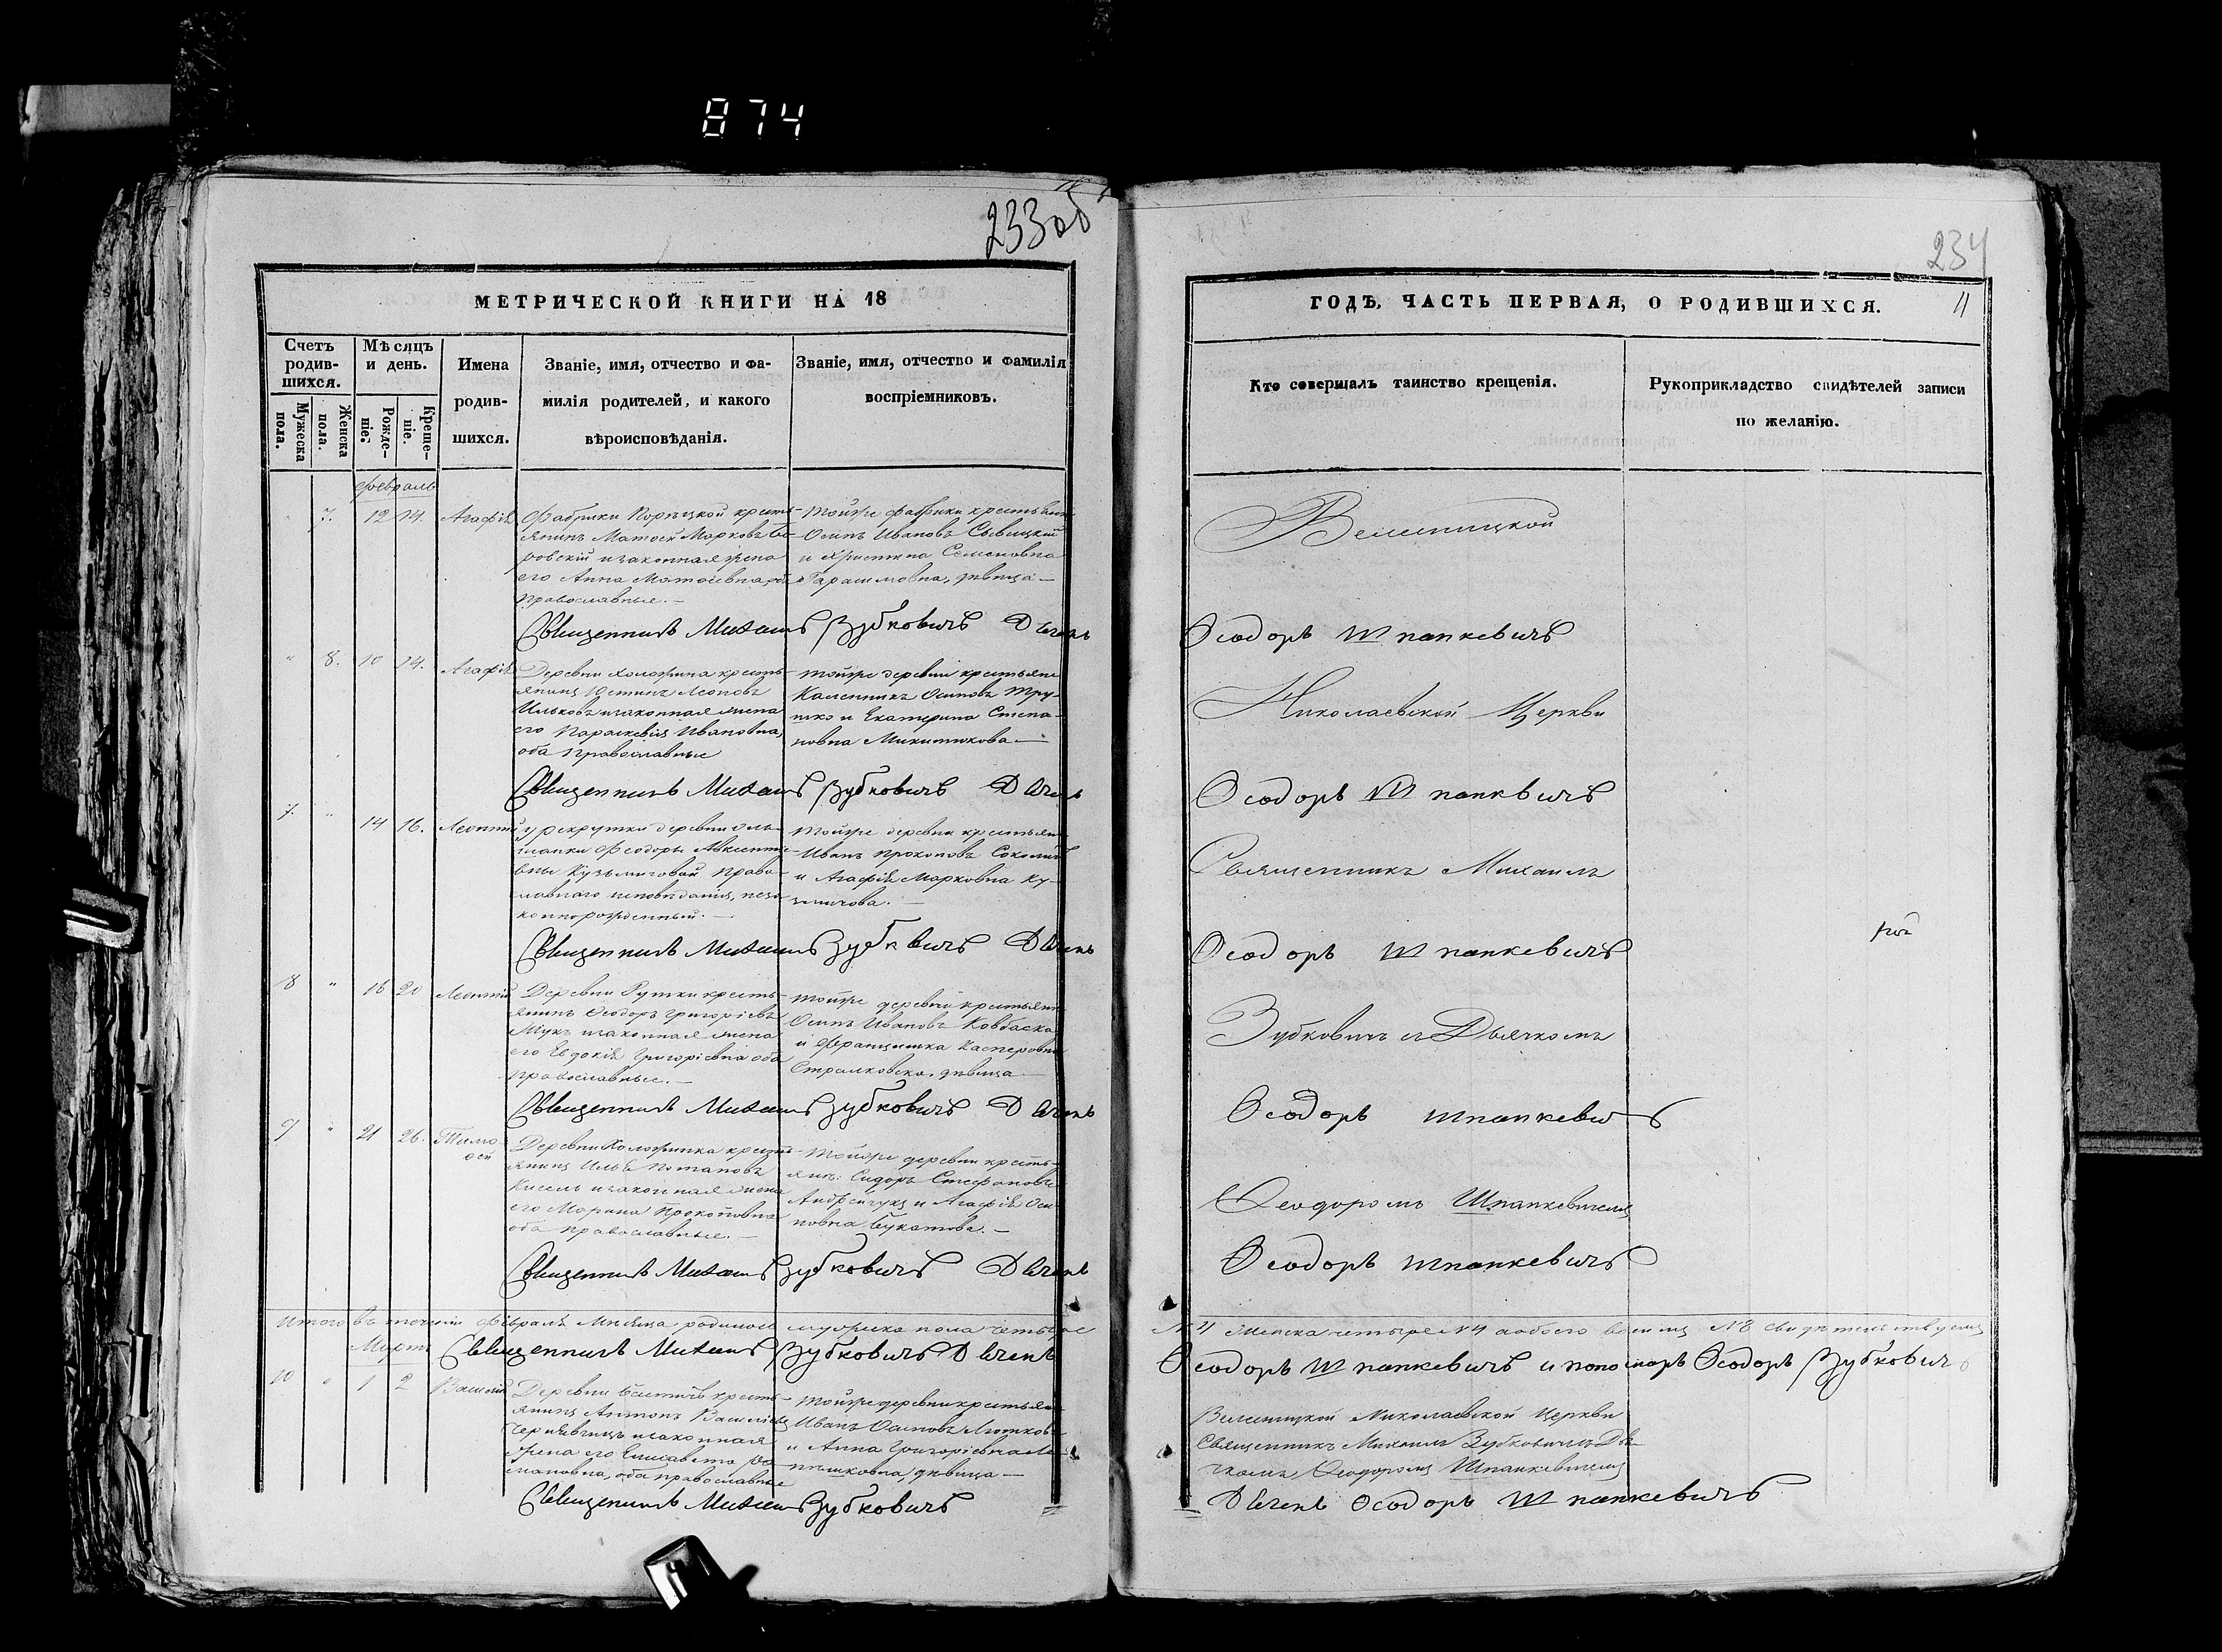 874
233об
МЕТРИЧЕСКОЙ КНИГИ НА 18
Счетъ родив-шихся.
Мѣсяцъ и день.
Имена родив-шихся.
Званіе, имя, отчество и фа-
милія родителей, и какого
вѣроисповѣданія.
Званіе, имя, отчество и фамилія
воспріемниковъ.
Мужеска пола.
Женска пола.
Рожде-ніе.
Креще-ніе.
февраль
" 7. 12 14. Агафія
Фабрики Порѣцкой кресть-
янинъ Матѳей Марковъ
и законная жена
его Анна Матѳіевна, оба
православные. —
Тойже фабрики крестьян
Осипъ Ивановъ
и Христина Семеновна
Гарасимовна, дѣвица —
Священникъ Михаилъ Зубковичъ Дьячекъ
" 8. 10 14. Агафія
Деревни Холожина кресть-
янинъ Устинъ Леоновъ
и законная жена
его Параскевія Ивановна,
оба православные
тойже деревни крестьяне
Каленникъ Осиповъ Тру-
шко и Екатерина Степа-
новна Микитюкова —
Священникъ Михаилъ Зубковичъ Дьячекъ
7. " 14 16. Леонтій
у рекрутки деревни
Феодоры Авксентіе-
вны Кузьмичовой право-
славнаго исповѣданія, неза-
коннорожденный. —
тойже деревни крестьян
Иванъ Прокоповъ
и Агафія Марковна Ку-
змичова. —
Священникъ Михаилъ Зубковичъ Дьячекъ
8 " 16 20 Леонтій
Деревни Рутки кресть-
янинъ Ѳеодоръ Григоріевъ
Мукъ и законная жена
его Евдокія Григоріевна оба
православные. —
тойже деревни крестьян
Осипъ Ивановъ Ковбаско
и Францишка Касперовна
дѣвица —
Священникъ Михаилъ Зубковичъ Дьячекъ
9 " 21 26. Тимо-
ѳей
Деревни Холожинка кресть-
янинъ Илья Потаповъ
Кисель и законная жена
его Марина Прокоповна
оба православные. —
Тойже деревни кресть-
янъ: Сидоръ Стефановъ
Андрейчукъ и Агафія Оси-
повна
Священникъ Михаилъ Зубковичъ Дьячекъ
Итого въ теченіи февраля мѣсяца родилось мужеска пола четыре
Мартъ
Священникъ Михаилъ Зубковичъ Дьячекъ
10 " 1 2 Василій
Деревни кресть-
янинъ Антонъ Василіевъ
и законная
жена его Елисавета Ро-
мановна, оба православные
тойже деревни крестьян
Иванъ Осиповъ Лютковъ
и Анна Григоріевна
дѣвица —
Священникъ Михаилъ Зубковичъ
234
11
ГОДЪ, ЧАСТЬ ПЕРВАЯ, О РОДИВШИХСЯ.
Кто совершалъ таинство крещенія.
Рукоприкладство свидѣтелей записи
по желанію.
Велесницкой
Ѳеодоръ Шпанкевичъ
Николаевской Церкви
Ѳеодоръ Шпанкевичъ
Священникъ Михаилъ
Ѳеодоръ Шпанкевичъ
Зубковичъ съ Дьячкомъ
Ѳеодоръ Шпанкевичъ
Ѳеодоромъ Шпанкевичемъ
Ѳеодоръ Шпанкевичъ
№ 4 женска четыре № 4 а обоего восемь № 8 свидѣтельствуемъ
Ѳеодоръ Шпанкевичъ и пономаръ Ѳеодоръ Зубковичъ
Велесницкой Николаевской Церкви
Священникъ Михаилъ Зубковичъ съ Дья-
чкомъ Ѳеодоромъ Шпанкевичемъ
Дьячекъ Ѳеодоръ Шпанкевичъ